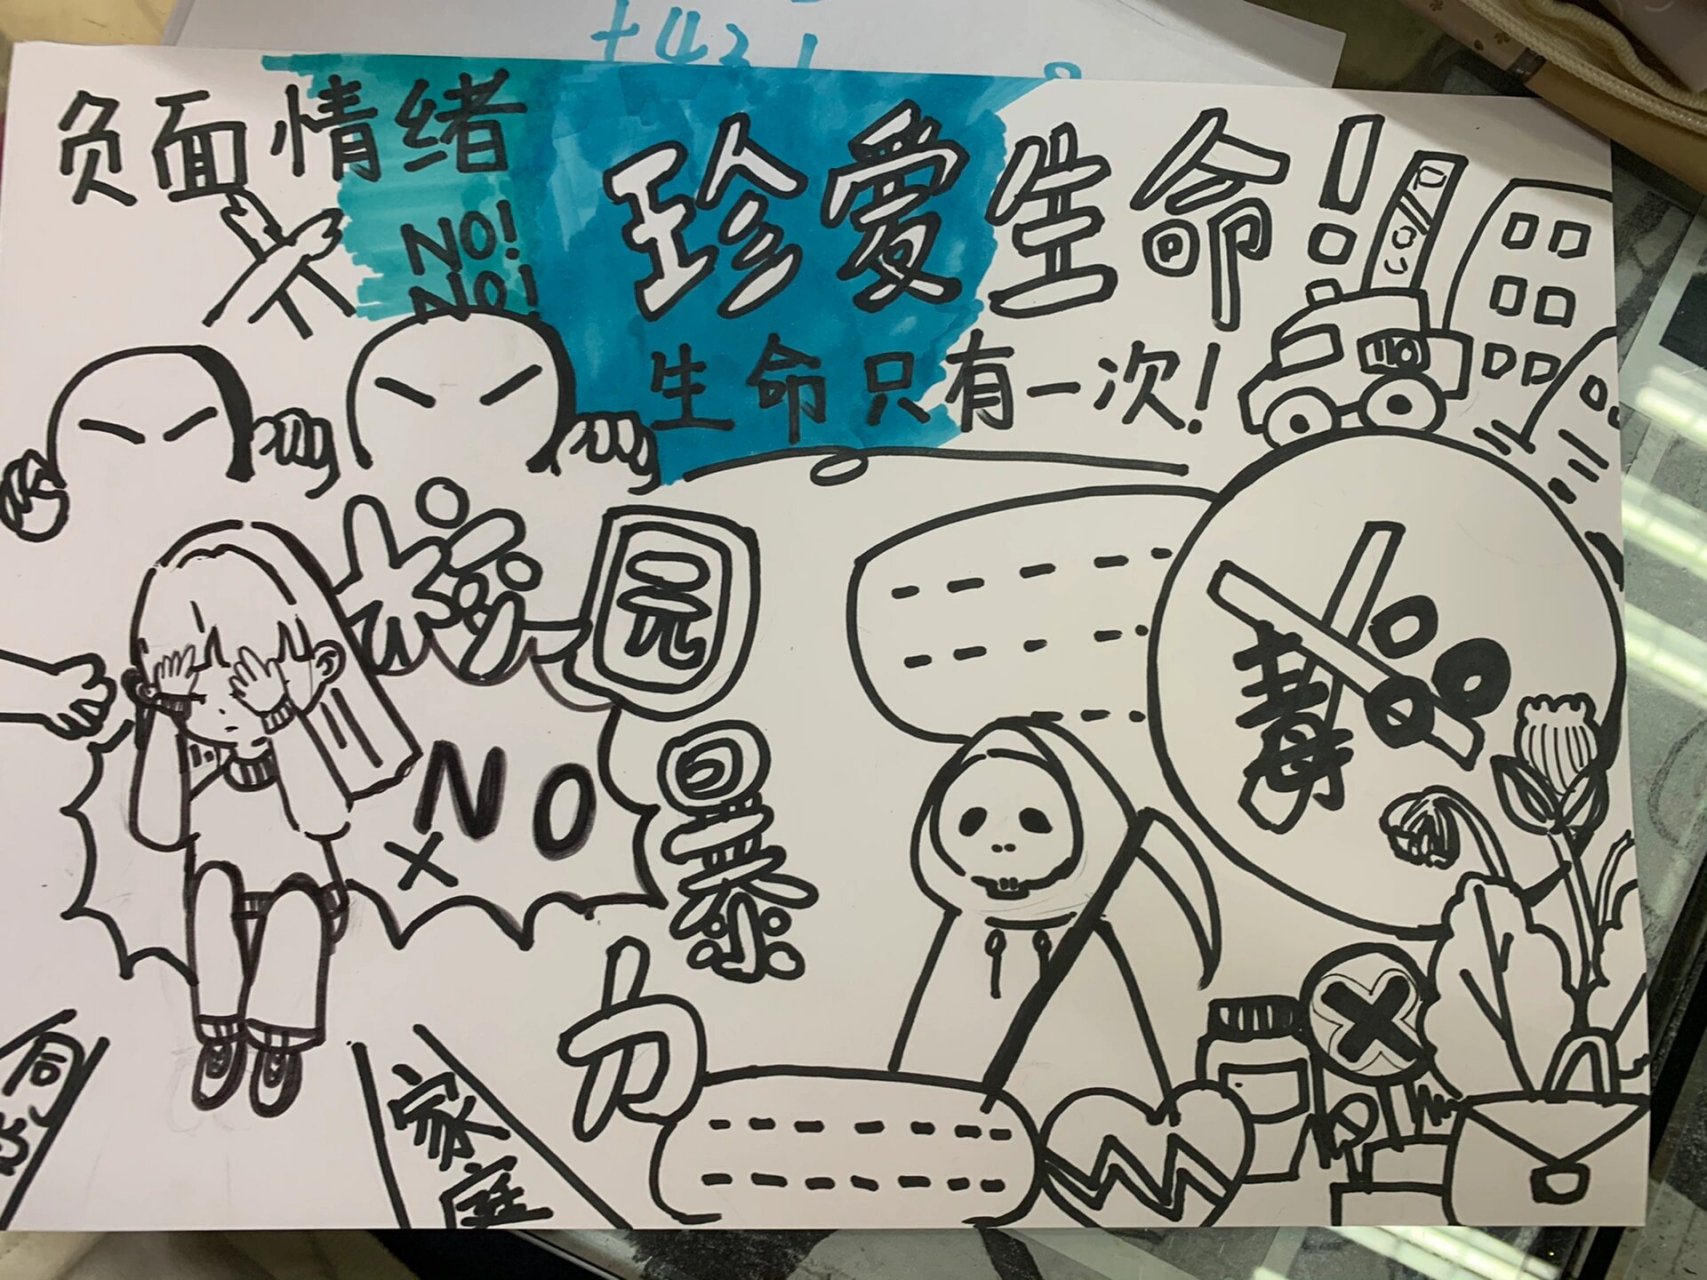 负面情绪
NO!
NO!
珍爱生命!
生命只有一次!
110
校园暴力
NO
毒
家庭